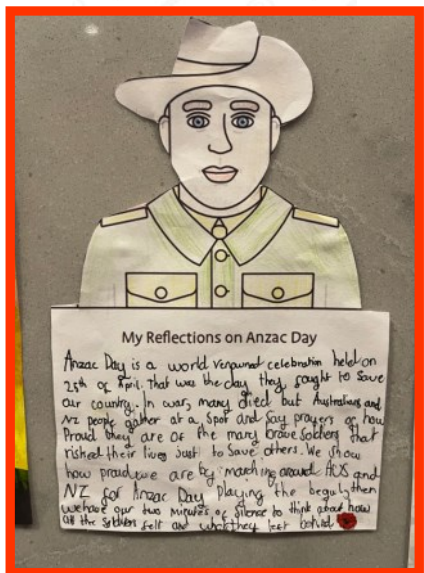 My Reflections on Anzac Day
Anzac Day is a world renowned celebration held on
25th of April. That was the day they fought to save
our country. In war, many died but Australians and
NZ people gather at a spot and say prayers or how
Proud they are of the many brave soldiers that
risked their lives just to save others. We show
how proud we are by marching around AUS and
NZ for Anzac Day playing the then
we have our two minutes of silence to think about how
all the soldiers felt and what they left behind